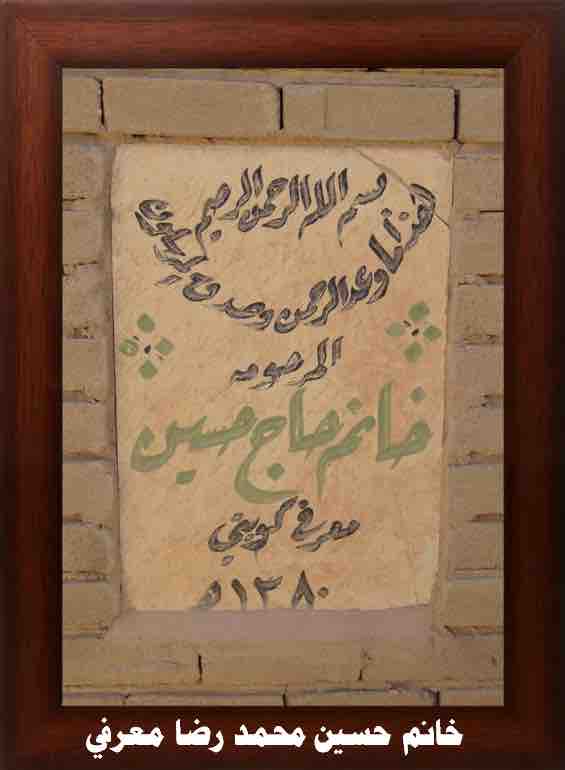 بسم الله الرحمن الرحيم
هذا ما وعد الرحمن وصدق المرسلون
المرحومه
خانم حاج حسين
معرفي كويتي
١٣٨٠ه
خانم حسين محمد رضا معرفي